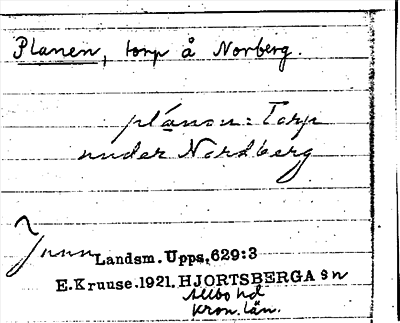 Planen, torp å Norberg.
plánən: Torp
under Nordberg
Landsm. Upps. 629:3
E. Kruuse. 1921. HJORTSBERGA sn
Allbo hd
Kron. län.